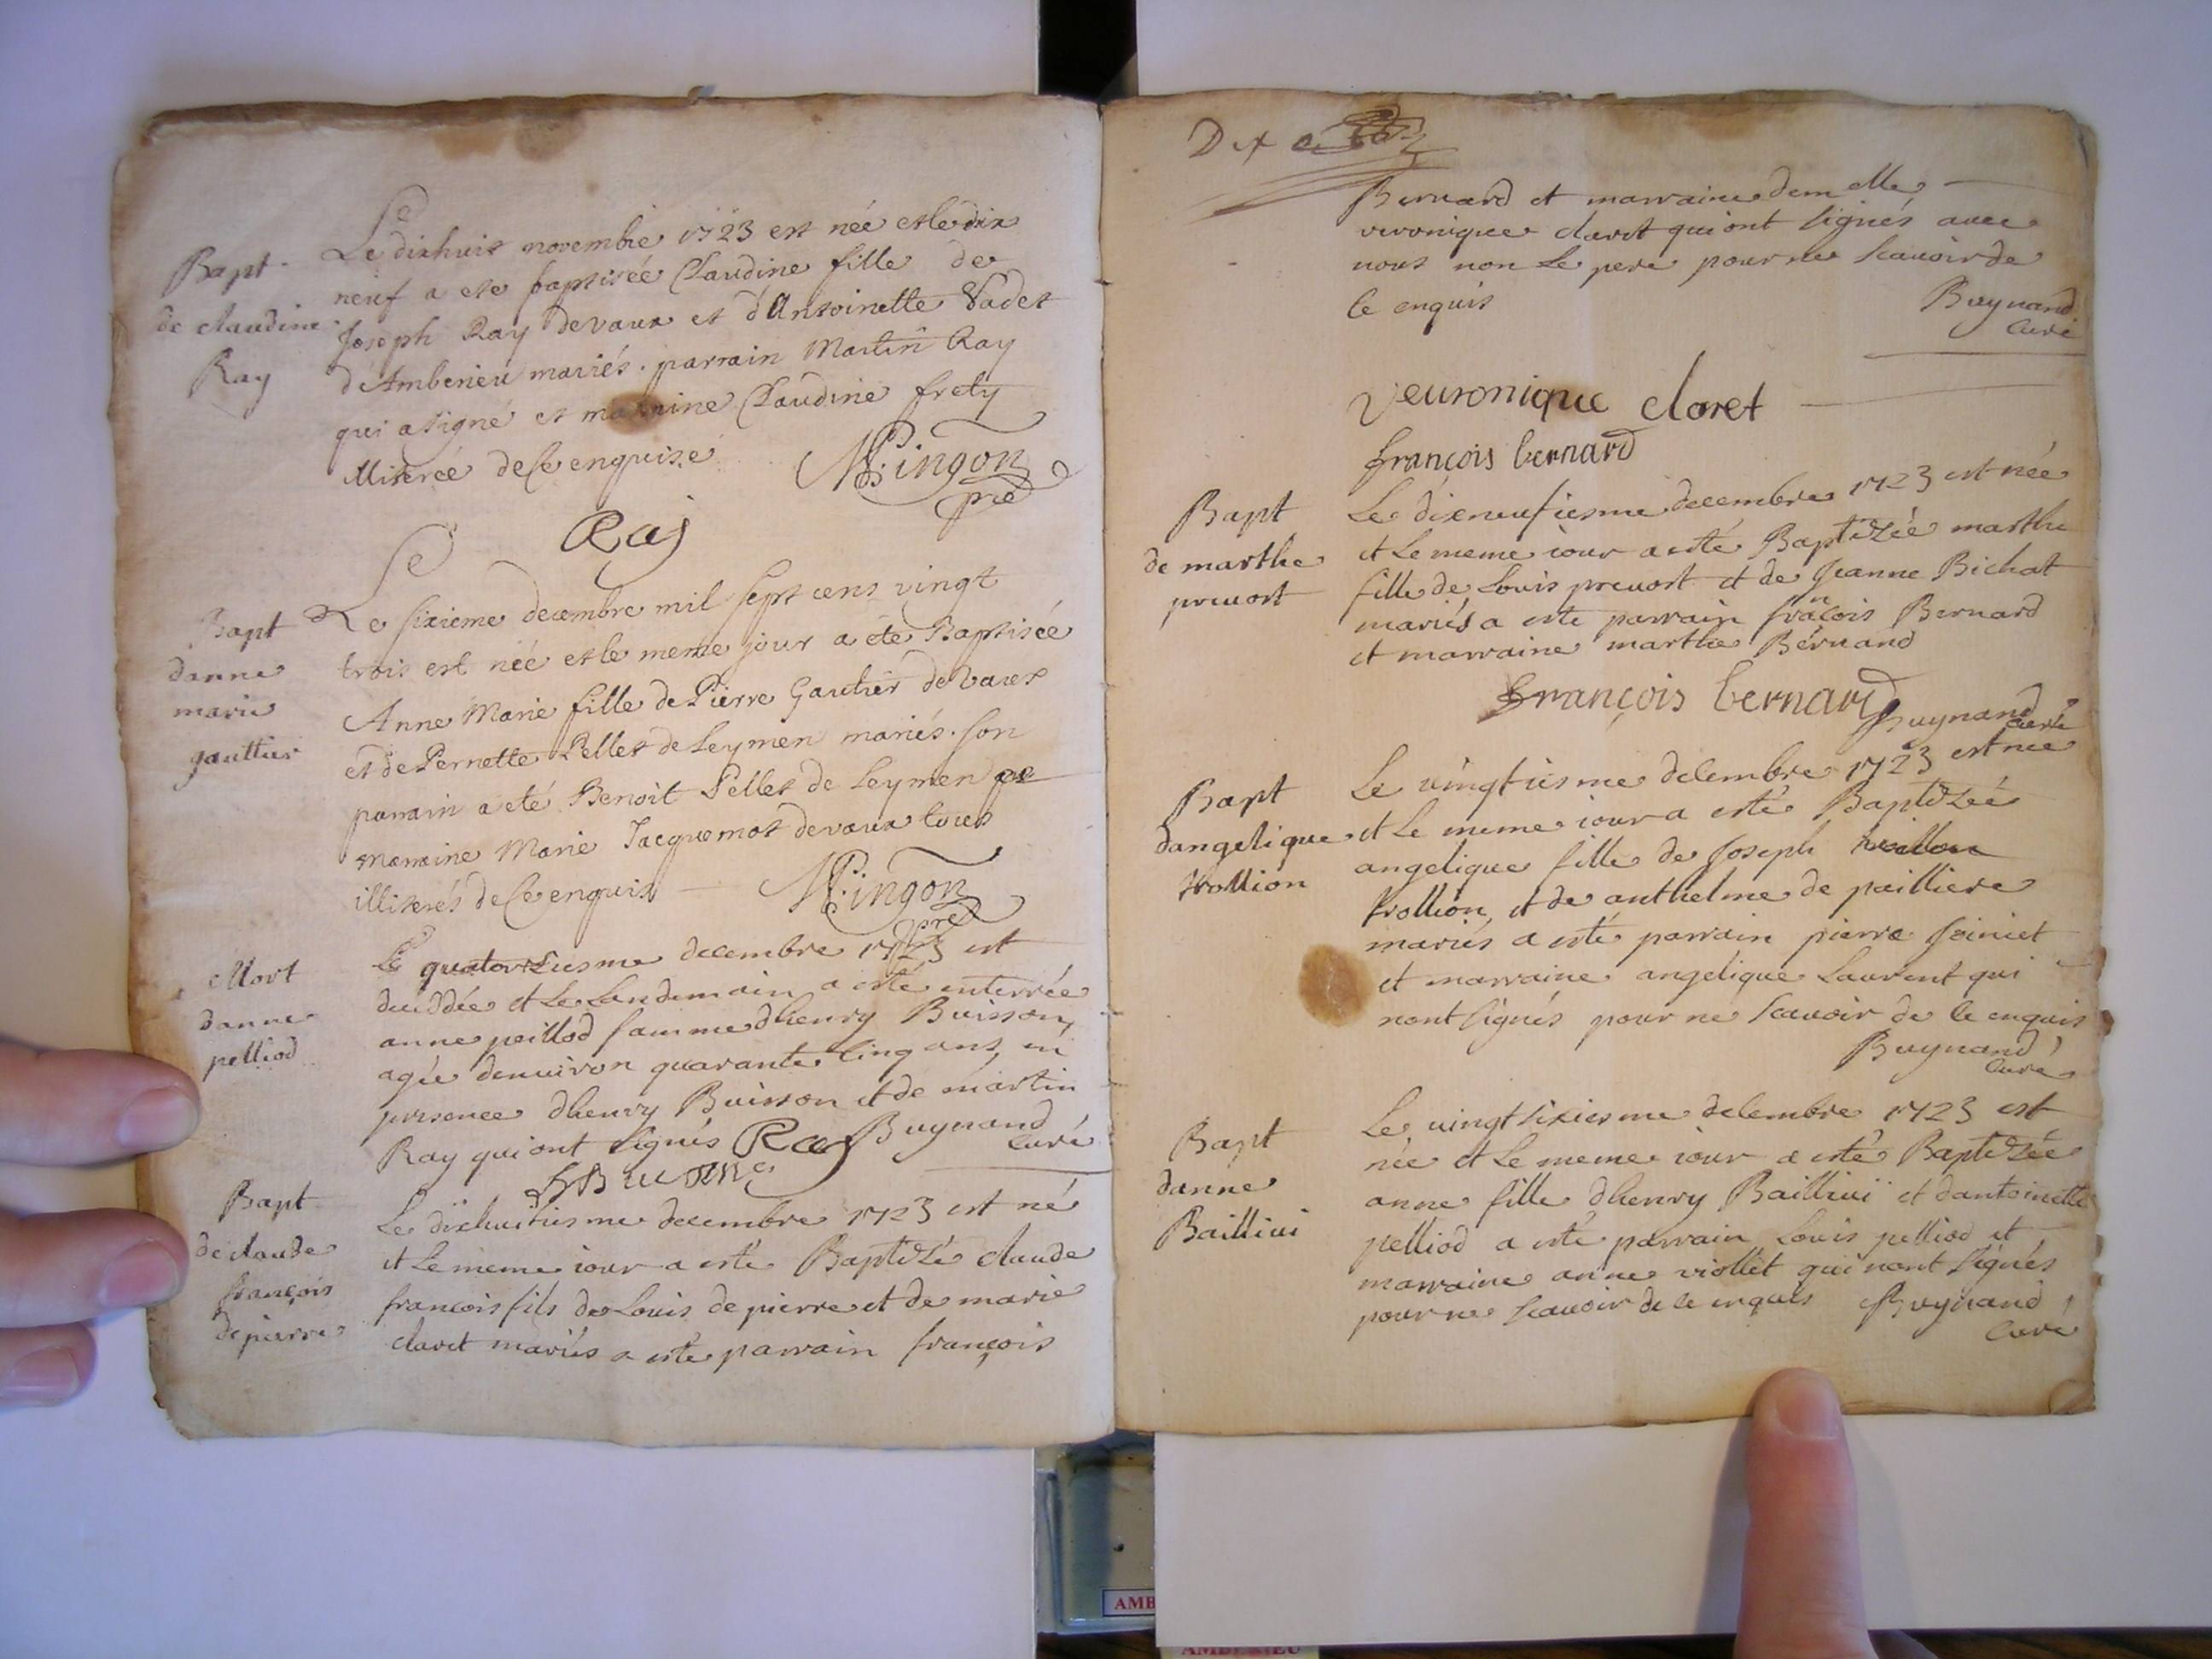 Bapt
de claudine
Ray
Le dixhuit novembre 1723 est née et le dix
neuf a ete baptisée Claudine fille de
Joseph Ray de vaux et d'Antoinette Vadet
d'Amberieu mariés. parrain Martin Ray
qui a signé et marraine Claudine frety
illiterée de ce enquise
Mingon
pre
Ray
Bapt
danne
marie
gauttier
Le sixieme decembre mil sept cens vingt
trois est née et le meme jour a été Baptisée
Anne Marie fille de Pierre Gautier de Vaux
et de Pernette Pellet de Leymen mariés. son
parrain a été Benoit Pellet de Leymen
marraine Marie Jacquemot de vaux tous
illiterés de ce enquis
Mingon
pre
Mort
danne
pelliod
Le quatorziesme decembre 1723 est
deceddée et le landemain a esté enterrée
anne peillod famme dhenry Buisson,
agée denuiron quarante cinq ans, en
presence dhenry Buisson et de martin
Ray qui ont signés Ray Buynand
curé
Bapt
de claude
françois
de pierre
Le dixhuitiesme decembre 1723 est né
et le meme iour a esté Baptizé claude
francois fils de Louis de pierre et de marie
claret mariés a esté parrain françois
Dix
Bernard et marraine demelle
veronique claret qui ont signés avec
nous non le pere pour ne scauoir de
ce enquis
Buynand
curé
Veuronique claret
françois bernard
Bapt
de marthe
preuost
Le dixneufiesme decembre 1723 est née
et le meme iour a esté Baptizée marthe
fille de Louis preuost et de Jeanne Bichat
mariés a esté parrain francois Bernard
et marraine marthe Bernand
françois bernard
Buynand
curé
Bapt
dangelique
trollion
Le vingtiesme decembre 1723 est née
et le meme iour a esté Baptizée
angelique fille de Joseph
trollion, et de anthelme de pailliere
mariés a esté parrain pierre Joiniet
et marraine angelique Laurent qui
nont signés pour ne scauoir de ce enquis
Buynand
curé
Bapt
danne
Bailliui
Le vingt sixiesme decembre 1723 est
née et le meme iour a esté Baptizée
anne fille dhenry Bailliui et dantoinette
pelliod a esté parrain Louis pelliod et
marraine anne viollet qui nont signés
pour ne scauoir de ce enquis Buynand
curé
AMB
AMBERIEU